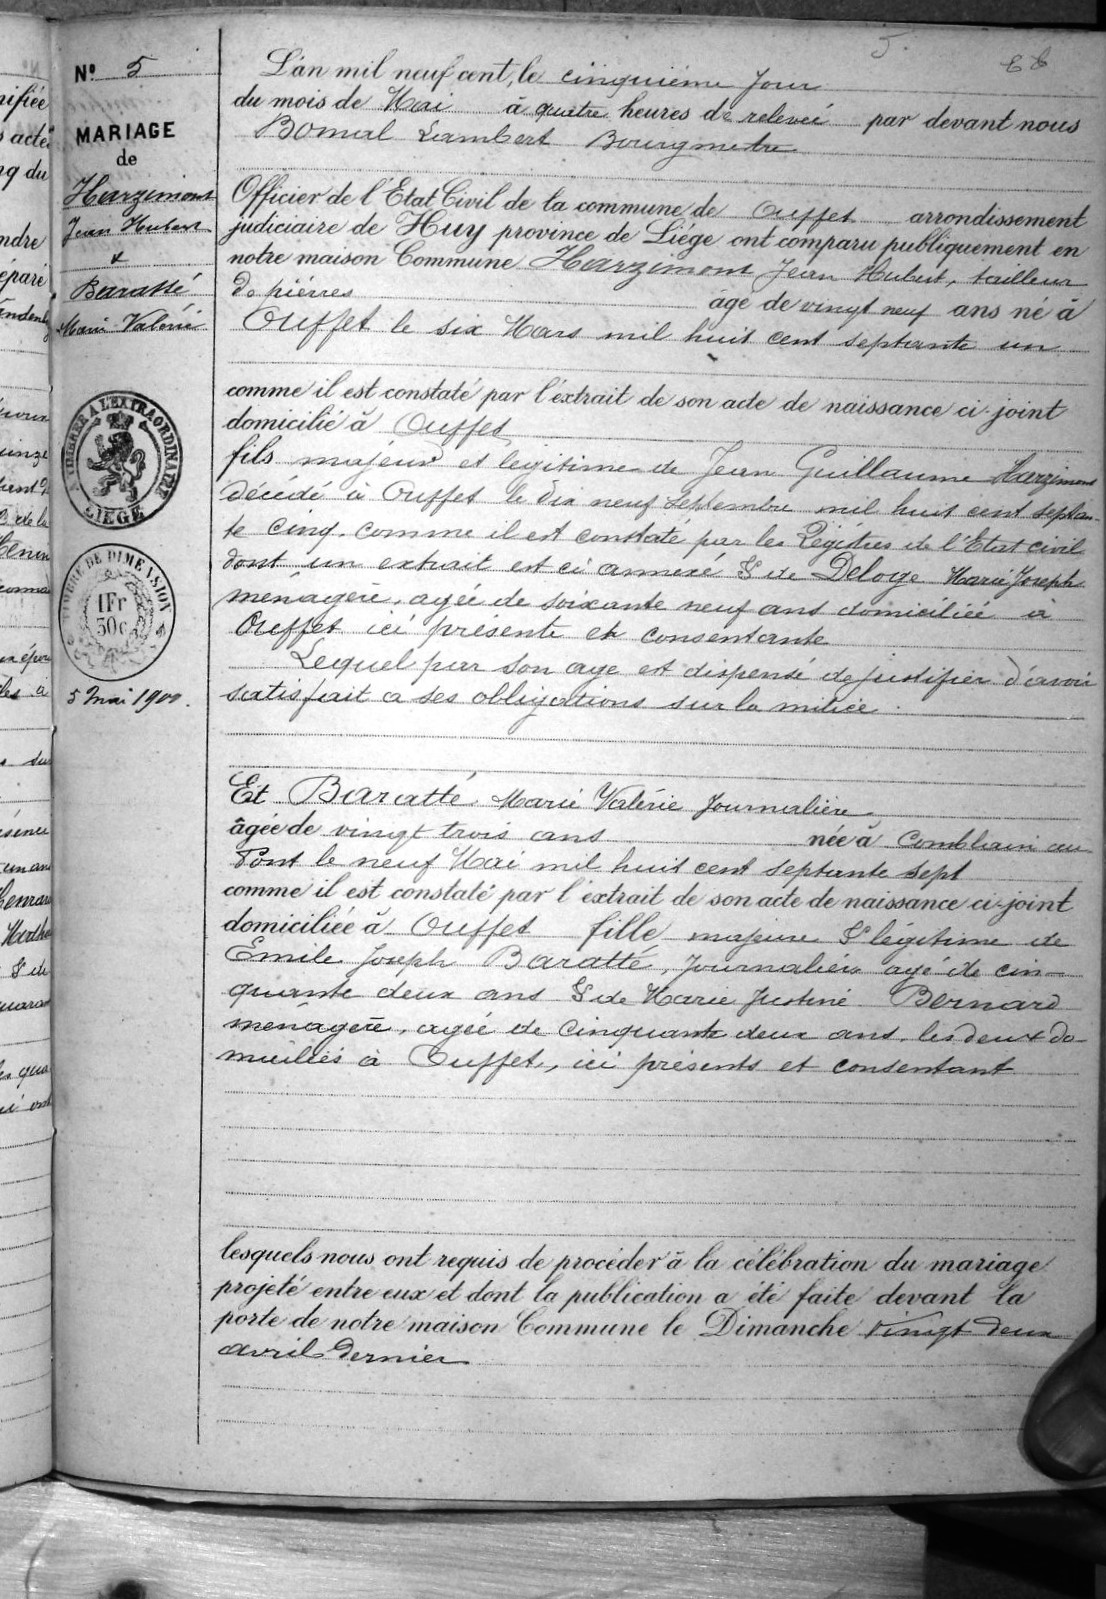 5.
Nº 5
MARIAGE
de
Harzimont
Jean Hubert
&
Baratté
Marie Valérie
TIMBRE A L'EXTRAORDINAIRE
LIEGE
TIMBRE DE DIMENSION
1Fr
30c
5 mai 1900.
L'an mil neuf cent, le cinquième jour
du mois de Mai à quatre heures de relevée par devant nous
Bomal Lambert Bourgmestre
Officier de l'Etat Civil de la commune de Ouffet arrondissement
judiciaire de Huy province de Liége ont comparu publiquement en
notre maison Commune Harzimont Jean Hubert, tailleur
de pierres âgé de vingt neuf ans né à
Ouffet le six Mars mil huit cent septante un
comme il est constaté par l'extrait de son acte de naissance ci-joint
domicilié à Ouffet
fils majeur et legitime de Jean Guillaume Harzimont
décédé à Ouffet le dix neuf Septembre mil huit cent septan-
te cinq, comme il est constaté par les Régistres de l'Etat civil
dont un extrait est ci annexé & de Deloge Marie Joseph
ménagère, agée de soixante neuf ans domiciliée à
Ouffet ici présente et consentante
Lequel par son age est dispensé de justifier d'avoir
satisfait a ses obligations sur la milice.
Et Baratté Marie Valérie Journalière
âgée de vingt trois ans née à Comblain au
Pont le neuf Mai mil huit cent septante sept
comme il est constaté par l'extrait de son acte de naissance ci-joint
domiciliée à Ouffet fille majeure & légitime de
Emile Joseph Baratté, Journalier agé de cin-
quante deux ans & de Marie Justine Bernard
ménagère, agée de cinquante deux ans, les deux do-
miciliés à Ouffet, ici présents et consentant
lesquels nous ont requis de procéder à la célébration du mariage
projeté entre eux et dont la publication a été faite devant la
porte de notre maison Commune le Dimanche vingt deux
avril dernier